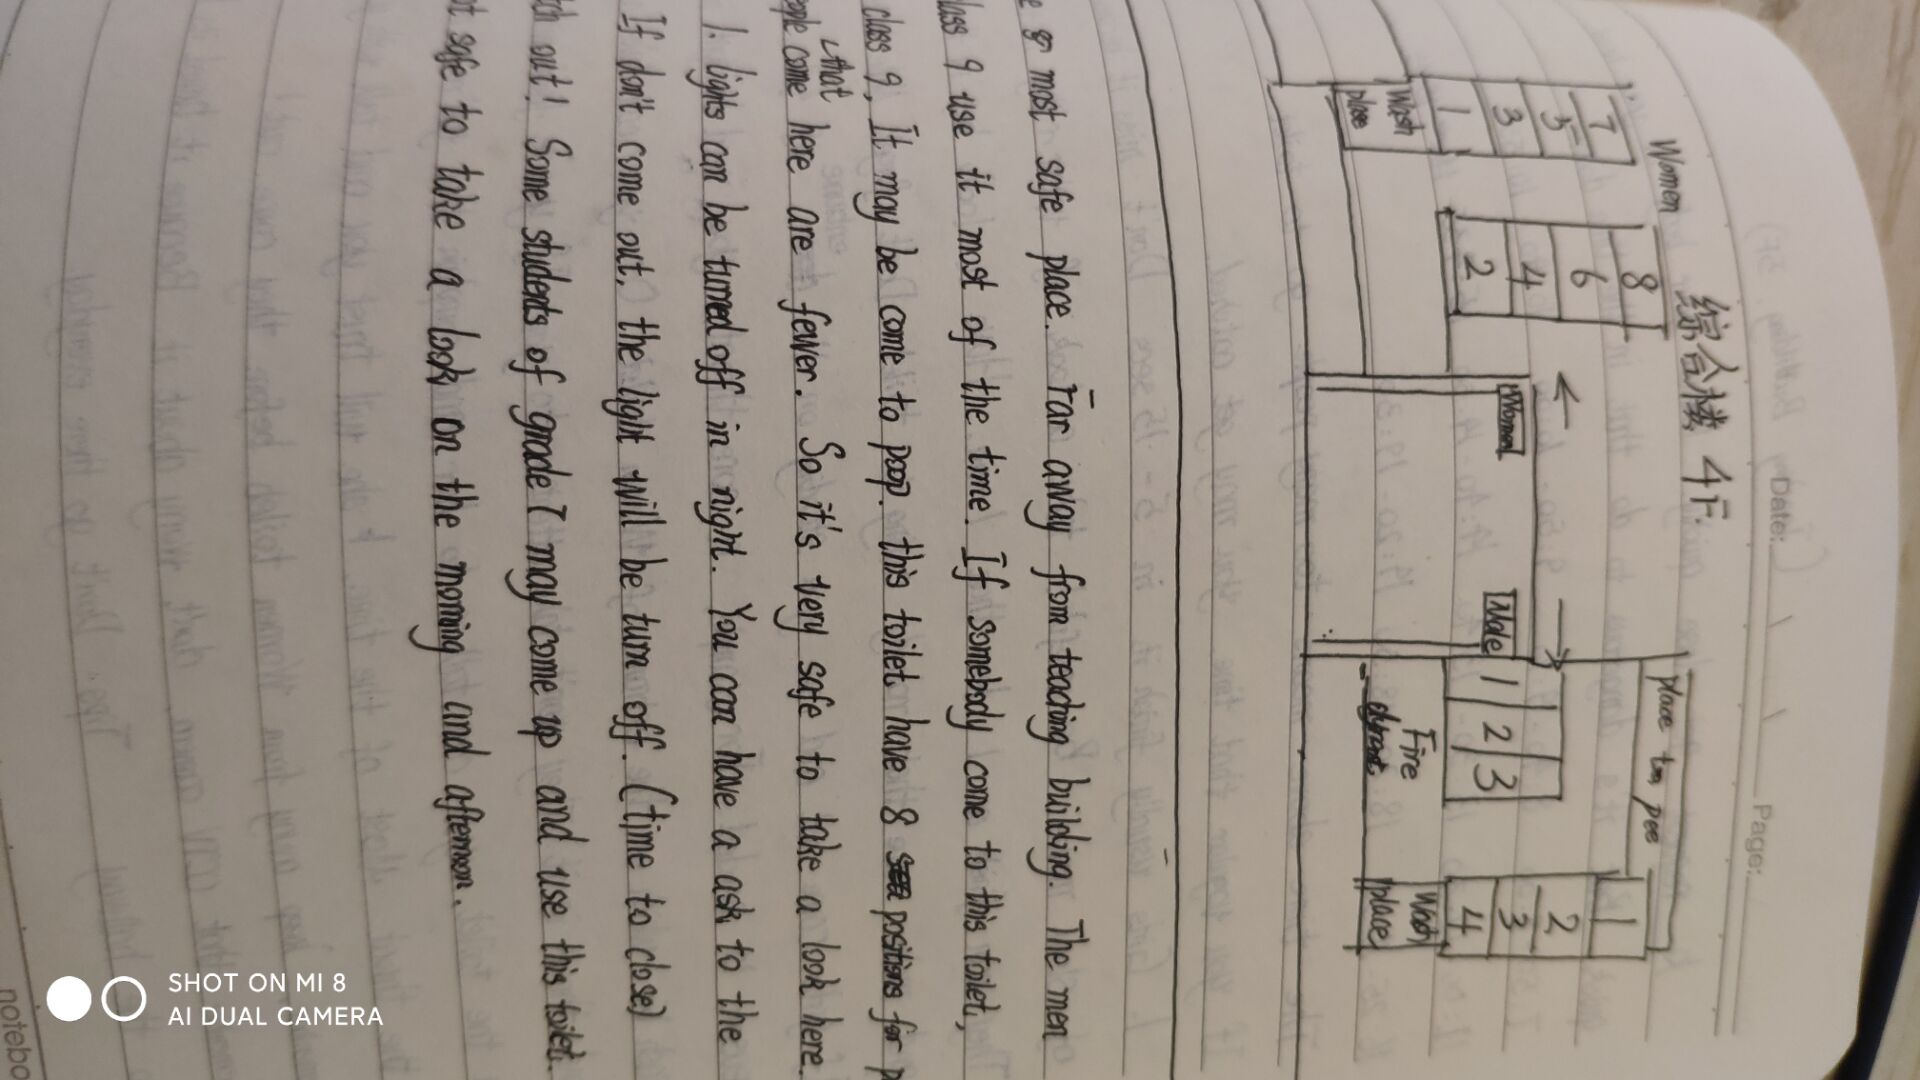 Date:
Page:
综合楼 4F.
Women
place to pee
7 8
5 6
3 4
1 2
Wash
place
←
→
Women
Male
1 2 3
Fire
1
2
3
4
Wash
place
most safe place. Far away from teaching building. The men
9 use it most of the time. If somebody come to this toilet,
class 9, It may be come to poop. this toilet have 8 positions for
that
come here are fewer. So it's very safe to take a look here.
1. lights can be turned off in night. You can have a ask to the
If don't come out, the light will be turn off. (time to close)
out! Some students of grade 7 may come up and use this toilet.
safe to take a look on the morning and afternoon.
SHOT ON MI 8
AI DUAL CAMERA